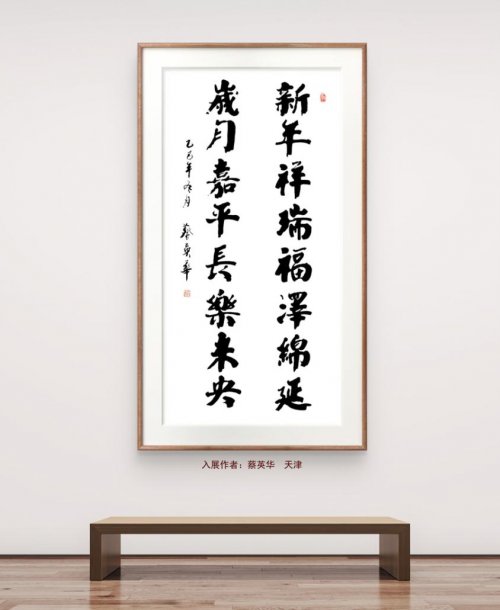 新年祥瑞福澤綿延
歲月嘉平長樂未央
乙巳年冬月 蔡英華
入展作者：蔡英华 天津